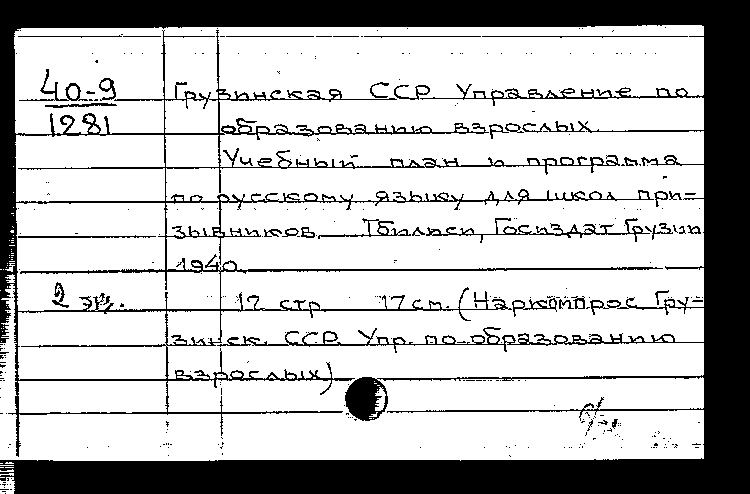 40-9 Грузинская ССР. Управление по
1281 образованию взрослых.
Учебный план и программа
по русскому языку для школ при=
зывников. Тбилиси, Госиздат Грузии
1940.
2 эк. 12 стр. 17 см. (Наркомпрос Гру=
зинск. ССР. Упр. по образованию
взрослых)